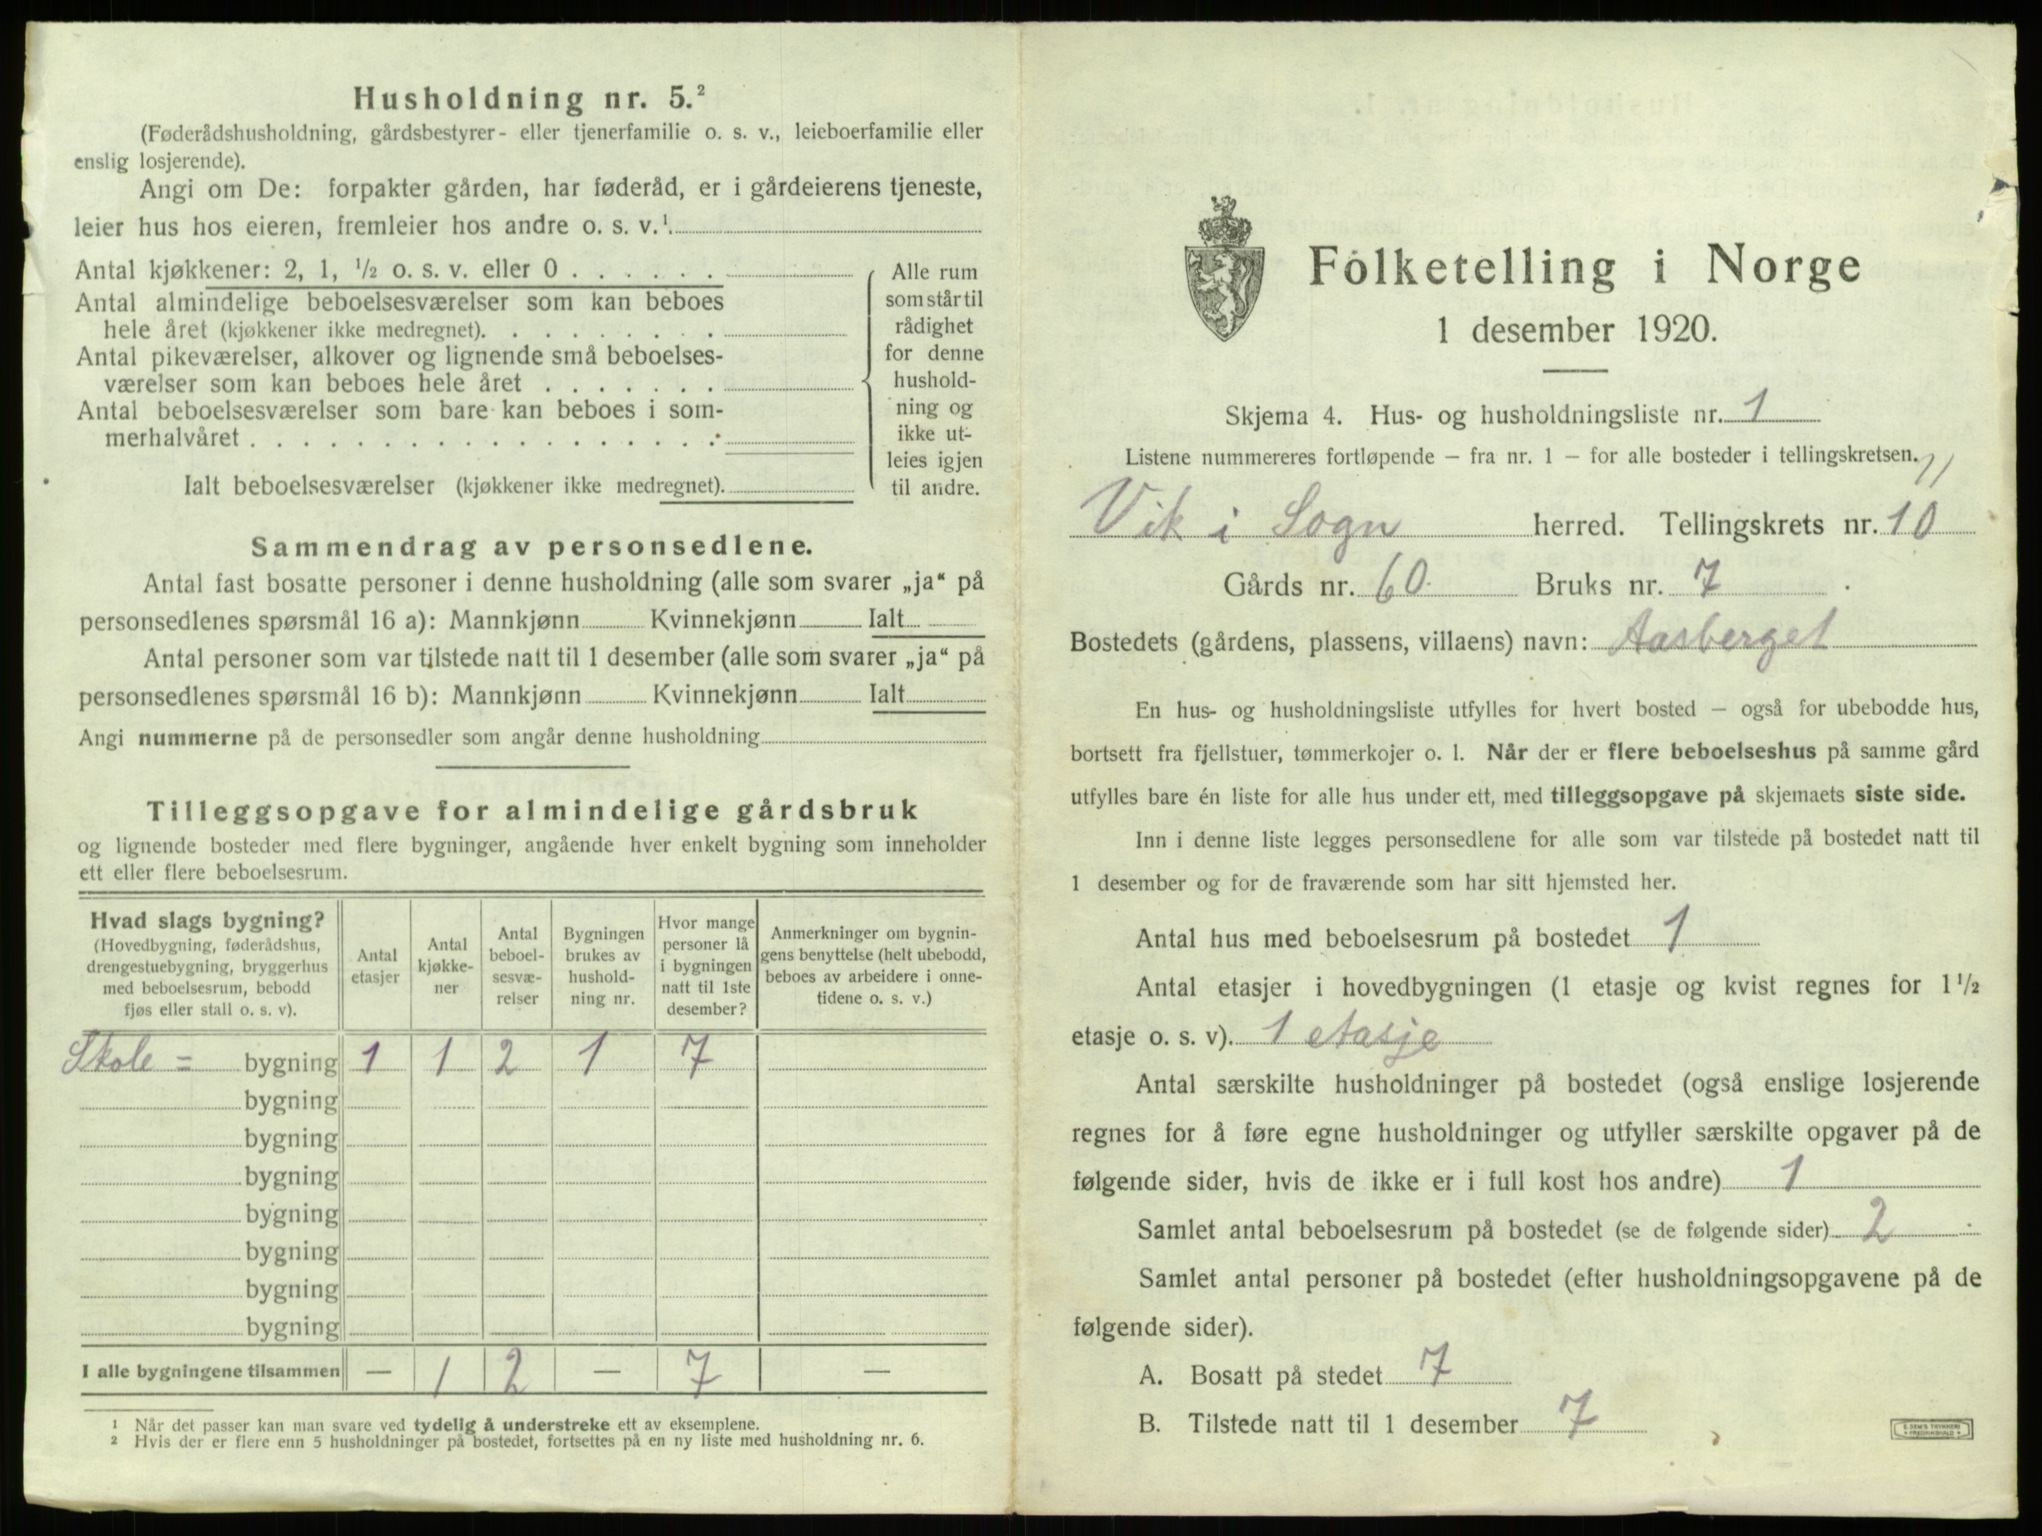 Husholdning nr. 5.²
(Føderådshusholdning, gårdsbestyrer- eller tjenerfamilie o. s. v., leieboerfamilie eller
enslig losjerende).
Angi om De: forpakter gården, har føderåd, er i gårdeierens tjeneste,
leier hus hos eieren, fremleier hos andre o. s. v.¹.
Antal kjøkkener: 2, 1, ½ o. s. v. eller 0 . . . . . .
Antal almindelige beboelsesværelser som kan beboes
hele året (kjøkkener ikke medregnet). . . . . . . . .
Antal pikeværelser, alkover og lignende små beboelses-
værelser som kan beboes hele året . . . . . . .
Antal beboelsesværelser som bare kan beboes i som-
merhalvåret . . . . . . . . . . . . . . . . . .
Ialt beboelsesværelser (kjøkkener ikke medregnet).
Alle rum
som står til
rådighet
for denne
hushold-
ning og
ikke ut-
leies igjen
til andre.
Sammendrag av personsedlene.
Antal fast bosatte personer i denne husholdning (alle som svarer „ja“ på
personsedlenes spørsmål 16 a): Mannkjønn Kvinnekjønn Ialt
Antal personer som var tilstede natt til 1 desember (alle som svarer „ja“ på
personsedlenes spørsmål 16 b): Mannkjønn Kvinnekjønn Ialt
Angi nummerne på de personsedler som angår denne husholdning
Tilleggsopgave for almindelige gårdsbruk
og lignende bosteder med flere bygninger, angående hver enkelt bygning som inneholder
ett eller flere beboelsesrum.
Hvad slags bygning?
(Hovedbygning, føderådshus,
drengestuebygning, bryggerhus
med beboelsesrum, bebodd
fjøs eller stall o. s. v).
Antal
etasjer
Antal
kjøkke-
ner
Antal
beboel-
sesvæ-
relser
Bygningen
brukes av
hushold-
ning nr.
Hvor mange
personer lå
i bygningen
natt til 1ste
desember?
Anmerkninger om bygnin-
gens benyttelse (helt ubebodd,
beboes av arbeidere i onne-
tidene o. s. v.)
Skole = bygning 1 1 2 1 7
bygning
bygning
bygning
bygning
bygning
bygning
bygning
I alle bygningene tilsammen — 1 2 — 7 —
¹ Når det passer kan man svare ved tydelig å understreke ett av eksemplene.
² Hvis der er flere enn 5 husholdninger på bostedet, fortsettes på en ny liste med husholdning nr. 6.
Folketelling i Norge
1 desember 1920.
Skjema 4. Hus- og husholdningsliste nr. 1
Listene nummereres fortløpende — fra nr. 1 — for alle bosteder i tellingskretsen.
11
Vik i Sogn herred. Tellingskrets nr. 10
Gårds nr. 60. Bruks nr. 7
Bostedets (gårdens, plassens, villaens) navn: Aasberget
En hus- og husholdningsliste utfylles for hvert bosted — også for ubebodde hus,
bortsett fra fjellstuer, tømmerkojer o. l. Når der er flere beboelseshus på samme gård
utfylles bare én liste for alle hus under ett, med tilleggsopgave på skjemaets siste side.
Inn i denne liste legges personsedlene for alle som var tilstede på bostedet natt til
1 desember og for de fraværende som har sitt hjemsted her.
Antal hus med beboelsesrum på bostedet 1
Antal etasjer i hovedbygningen (1 etasje og kvist regnes for 1½
etasje o. s. v). 1 etasje
Antal særskilte husholdninger på bostedet (også enslige losjerende
regnes for å føre egne husholdninger og utfyller særskilte opgaver på de
følgende sider, hvis de ikke er i full kost hos andre) 1
Samlet antal beboelsesrum på bostedet (se de følgende sider) 2
Samlet antal personer på bostedet (efter husholdningsopgavene på de
følgende sider).
A. Bosatt på stedet 7
B. Tilstede natt til 1 desember 7